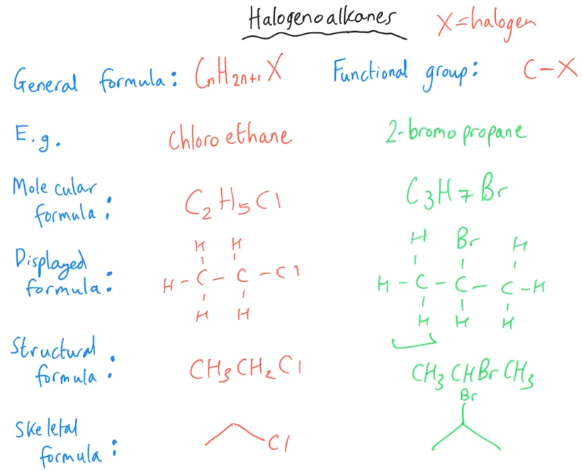 Halogenoalkanes X=halogen
General formula: CnH2n+1X Functional group: C-X
E.g. Chloroethane 2-bromopropane
Molecular formula: C2H5Cl C3H7Br
Displayed formula:
H H
H-C-C-Cl
H H
H Br H
H-C-C-C-H
H H H
Structural formula: CH3CH2Cl CH3CHBrCH3
Skeletal formula: Cl Br